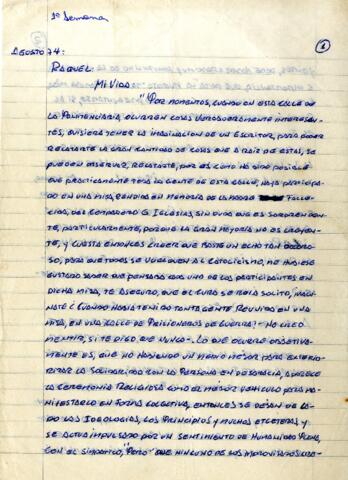 1ª Semana
1
AGOSTO 74:
RAQUEL:
Mi Vida
"Por momentos, cuando en esta calle de
la Penitenciaría, ocurren cosas verdaderamente interesan-
tes, quisiera tener la imaginación de un escritor, para poder
relatarte la gran cantidad de cosas que a raíz de estas, se
pueden observar, relatarte, por es como ha sido posible
que practicamente toda la gente de esta calle, haya participa-
do en una misa, rendida en memoria de la madre falle-
cida, del compañero G. Iglesias, sin duda que es sorprenden-
te, particularmente, porque la gran mayoría no es creyen-
te, y cuesta entonces creer que baste un echo tan doloro-
so, para que todos se vuelquen al catolicismo, me hubiese
gustado saber que pensaba cada uno de los participantes en
dicha misa, te aseguro, que el cura se reía solito,
naté é cuando habia tenido tanta gente reunida en una
misa, en una calle de prisioneros de guerra?- No creo
mentir, si te digo que nunca-. Lo que ocurre objetiva-
mente es, que no habiendo un medio mejor para exterio-
rizar la solidaridad con la persona en desgracia, aparece
la ceremonia religiosa como el mejor vehículo para ma-
nifestarlo en forma colectiva, entonces se dejan de la-
do las ideologías, los principios y muchas etceteras y
se actua impulsado por un sentimiento de humanidad plena,
con el simbolico, "Pero" que ninguno de los improvisados